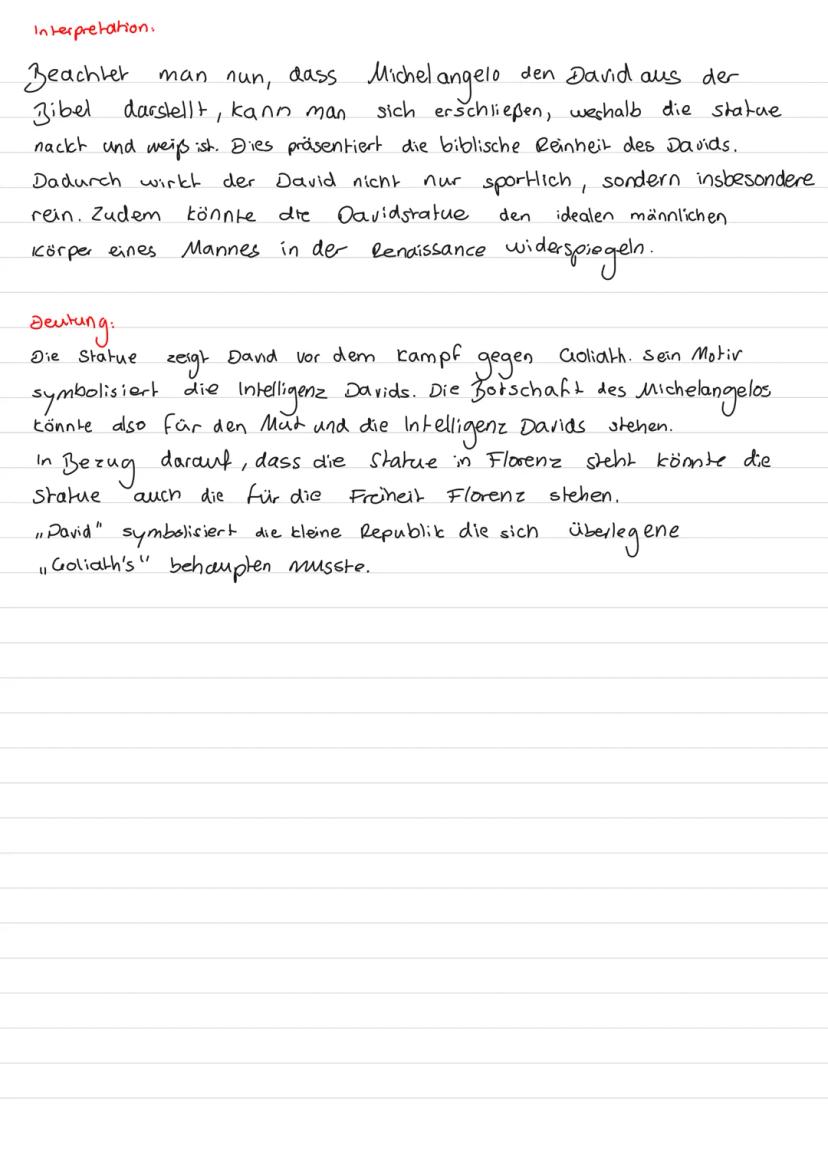 Interpretation:
Beachtet man nun, dass Michelangelo den David aus der
Bibel darstellt, kann man sich erschließen, weshalb die statue
nackt und weiß ist. Dies präsentiert die biblische Reinheit des Davids.
Dadurch wirkt der David nicht nur sportlich, sondern insbesondere
rein. Zudem könnte die Davidstatue den idealen männlichen
Körper eines Mannes in der Renaissance widerspiegeln.
Deutung:
Die Statue zeigt David vor dem Kampf gegen Goliath. Sein Motiv
symbolisiert die Intelligenz Davids. Die Botschaft des Michelangelos
könnte also für den Mut und die Intelligenz Davids stehen.
In Bezug darauf, dass die Statue in Florenz steht könnte die
Statue auch die für die Freiheit Florenz stehen.
„David" symbolisiert die kleine Republik die sich überlegene
„Goliath's" behaupten musste.